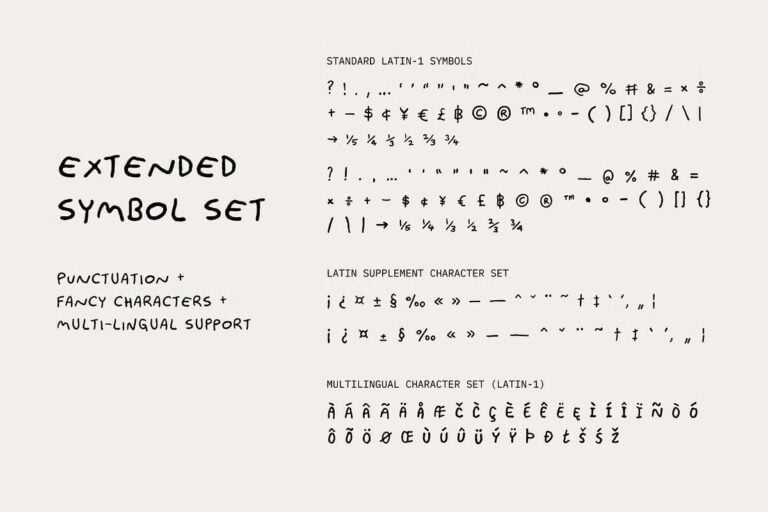 EXTENDED
SYMBOL SET
PUNCTUATION +
FANCY CHARACTERS +
MULTI-LINGUAL SUPPORT
STANDARD LATIN-1 SYMBOLS
? ! . , … ‘ ’ “ ” ' " ~ ^ * ° _ @ % # & = × ÷
+ − $ ¢ ¥ € £ ฿ © ® ™ • ∘ - ( ) [ ] { } / \ |
→ ⅕ ¼ ⅓ ½ ⅔ ¾
? ! . , … ‘ ’ “ ” ' " ~ ^ * ° _ @ % # & =
× ÷ + − $ ¢ ¥ € £ ฿ © ® ™ • ∘ - ( ) [ ] { }
/ \ | → ⅕ ¼ ⅓ ½ ⅔ ¾
LATIN SUPPLEMENT CHARACTER SET
¡ ¿ ¤ ± § ‰ « » – — ˆ ˇ ¨ ˜ † ‡ ` ´ ‚ „ ¦
¡ ¿ ¤ ± § ‰ « » – — ˆ ˇ ¨ ˜ † ‡ ` ´ ‚ „ ¦
MULTILINGUAL CHARACTER SET (LATIN-1)
À Á Â Ã Ä Å Æ Č C̀ ç È É Ê Ë ę Ì Í Î Ï Ñ Ò Ó
Ô Õ Ö Ø Œ Ù Ú Û Ü Ý Ÿ Þ Ð ŧ Š Ś Ž